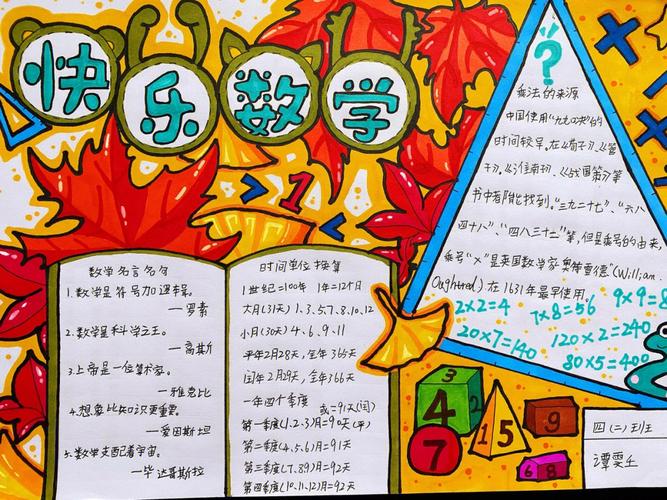 快乐数学
数学名言名句
1.数学是符号加逻辑。
—罗素
2.数学是科学之王。
—高斯
3.上帝是一位算术家。
—雅克比
4.想象比知识更重要。
—爱因斯坦
5.数学支配着宇宙。
—毕达哥斯拉
时间单位换算
1世纪=100年 1年=12个月
大月(31天)1、3、5、7、8、10、12
小月(30天)4、6、9、11
平年2月28天,全年365天
闰年2月29天,全年366天
一年四个季度
或=91天(闰)
第一季度(1、2、3)月=90天(平)
第二季度(4、5、6)月=91天
第三季度(7、8、9)月=92天
第四季度(10、11、12)月=92天
?
乘法的来源
中国使用"九九口诀"的
时间较早。在《荀子》、《管
子》、《淮南子》、《战国策》等
书中都能找到。"三九二十七"、"六八
四十八"、"四八三十二"等,但是乘号的由来,
乘号"×"是英国数学家奥特雷德"(William
Oughtred)在1631年最早使用。
2×2=4
7×8=56
9×9=8
20×7=140
120×2=240
80×5=400
> 1 <
3
4
2
7
1 5
9
6 8
四(二)班
谭雯